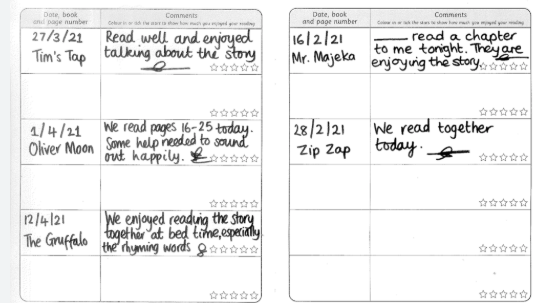 Date, book
and page number
Comments
Colour in or tick the stars to show how much you enjoyed your reading
27/3/21
Tim's Tap
Read well and enjoyed
talking about the story
1/4/21
Oliver Moon
We read pages 16-25 today.
Some help needed to sound
out happily.
12/4/21
The Gruffalo
We enjoyed reading the story
together at bed time, especially
the rhyming words
Date, book
and page number
Comments
Colour in or tick the stars to show how much you enjoyed your reading
16/2/21
Mr. Majeka
read a chapter
to me tonight. They are
enjoying the story.
28/2/21
Zip Zap
We read together
today.